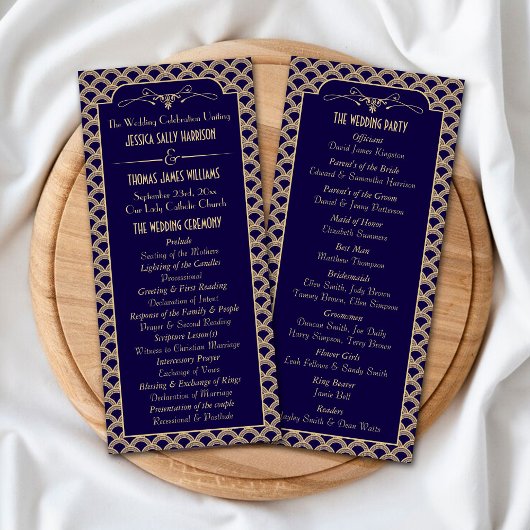 The Wedding Celebration Uniting
JESSICA SALLY HARRISON
&
THOMAS JAMES WILLIAMS
September 23rd, 20xx
Our Lady Catholic Church
THE WEDDING CEREMONY
Prelude
Seating of the Mothers
Lighting of the Candles
Processional
Greeting & First Reading
Declaration of Intent
Response of the Family & People
Prayer & Second Reading
Scripture Lesson(s)
Witness to Christian Marriage
Intercessory Prayer
Exchange of Vows
Blessing & Exchange of Rings
Declaration of Marriage
Presentation of the couple
Recessional & Postlude
THE WEDDING PARTY
Officiant
David James Kingston
Parent's of the Bride
Edward & Samantha Harrison
Parent's of the Groom
Daniel & Jenny Patterson
Maid of Honor
Elizabeth Summers
Best Man
Matthew Thompson
Bridesmaids
Ellen Smith, Jody Brown
Tammy Brown, Ellen Simpson
Groomsmen
Duncan Smith, Joe Daily
Harry Simpson, Terry Brown
Flower Girls
Leah Fellows & Sandy Smith
Ring Bearer
Jamie Bell
Readers
Hayley Smith & Dean Watts